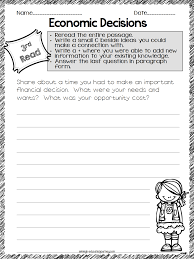 Name Date
Economic Decisions
3rd
Read
- Reread the entire passage.
- Write a small C beside ideas you could
make a connection with.
- Write a + where you were able to add new
information to your existing knowledge.
- Answer the last question in paragraph
form.
Share about a time you had to make an important
financial decision. What were your needs and
wants? What was your opportunity cost?